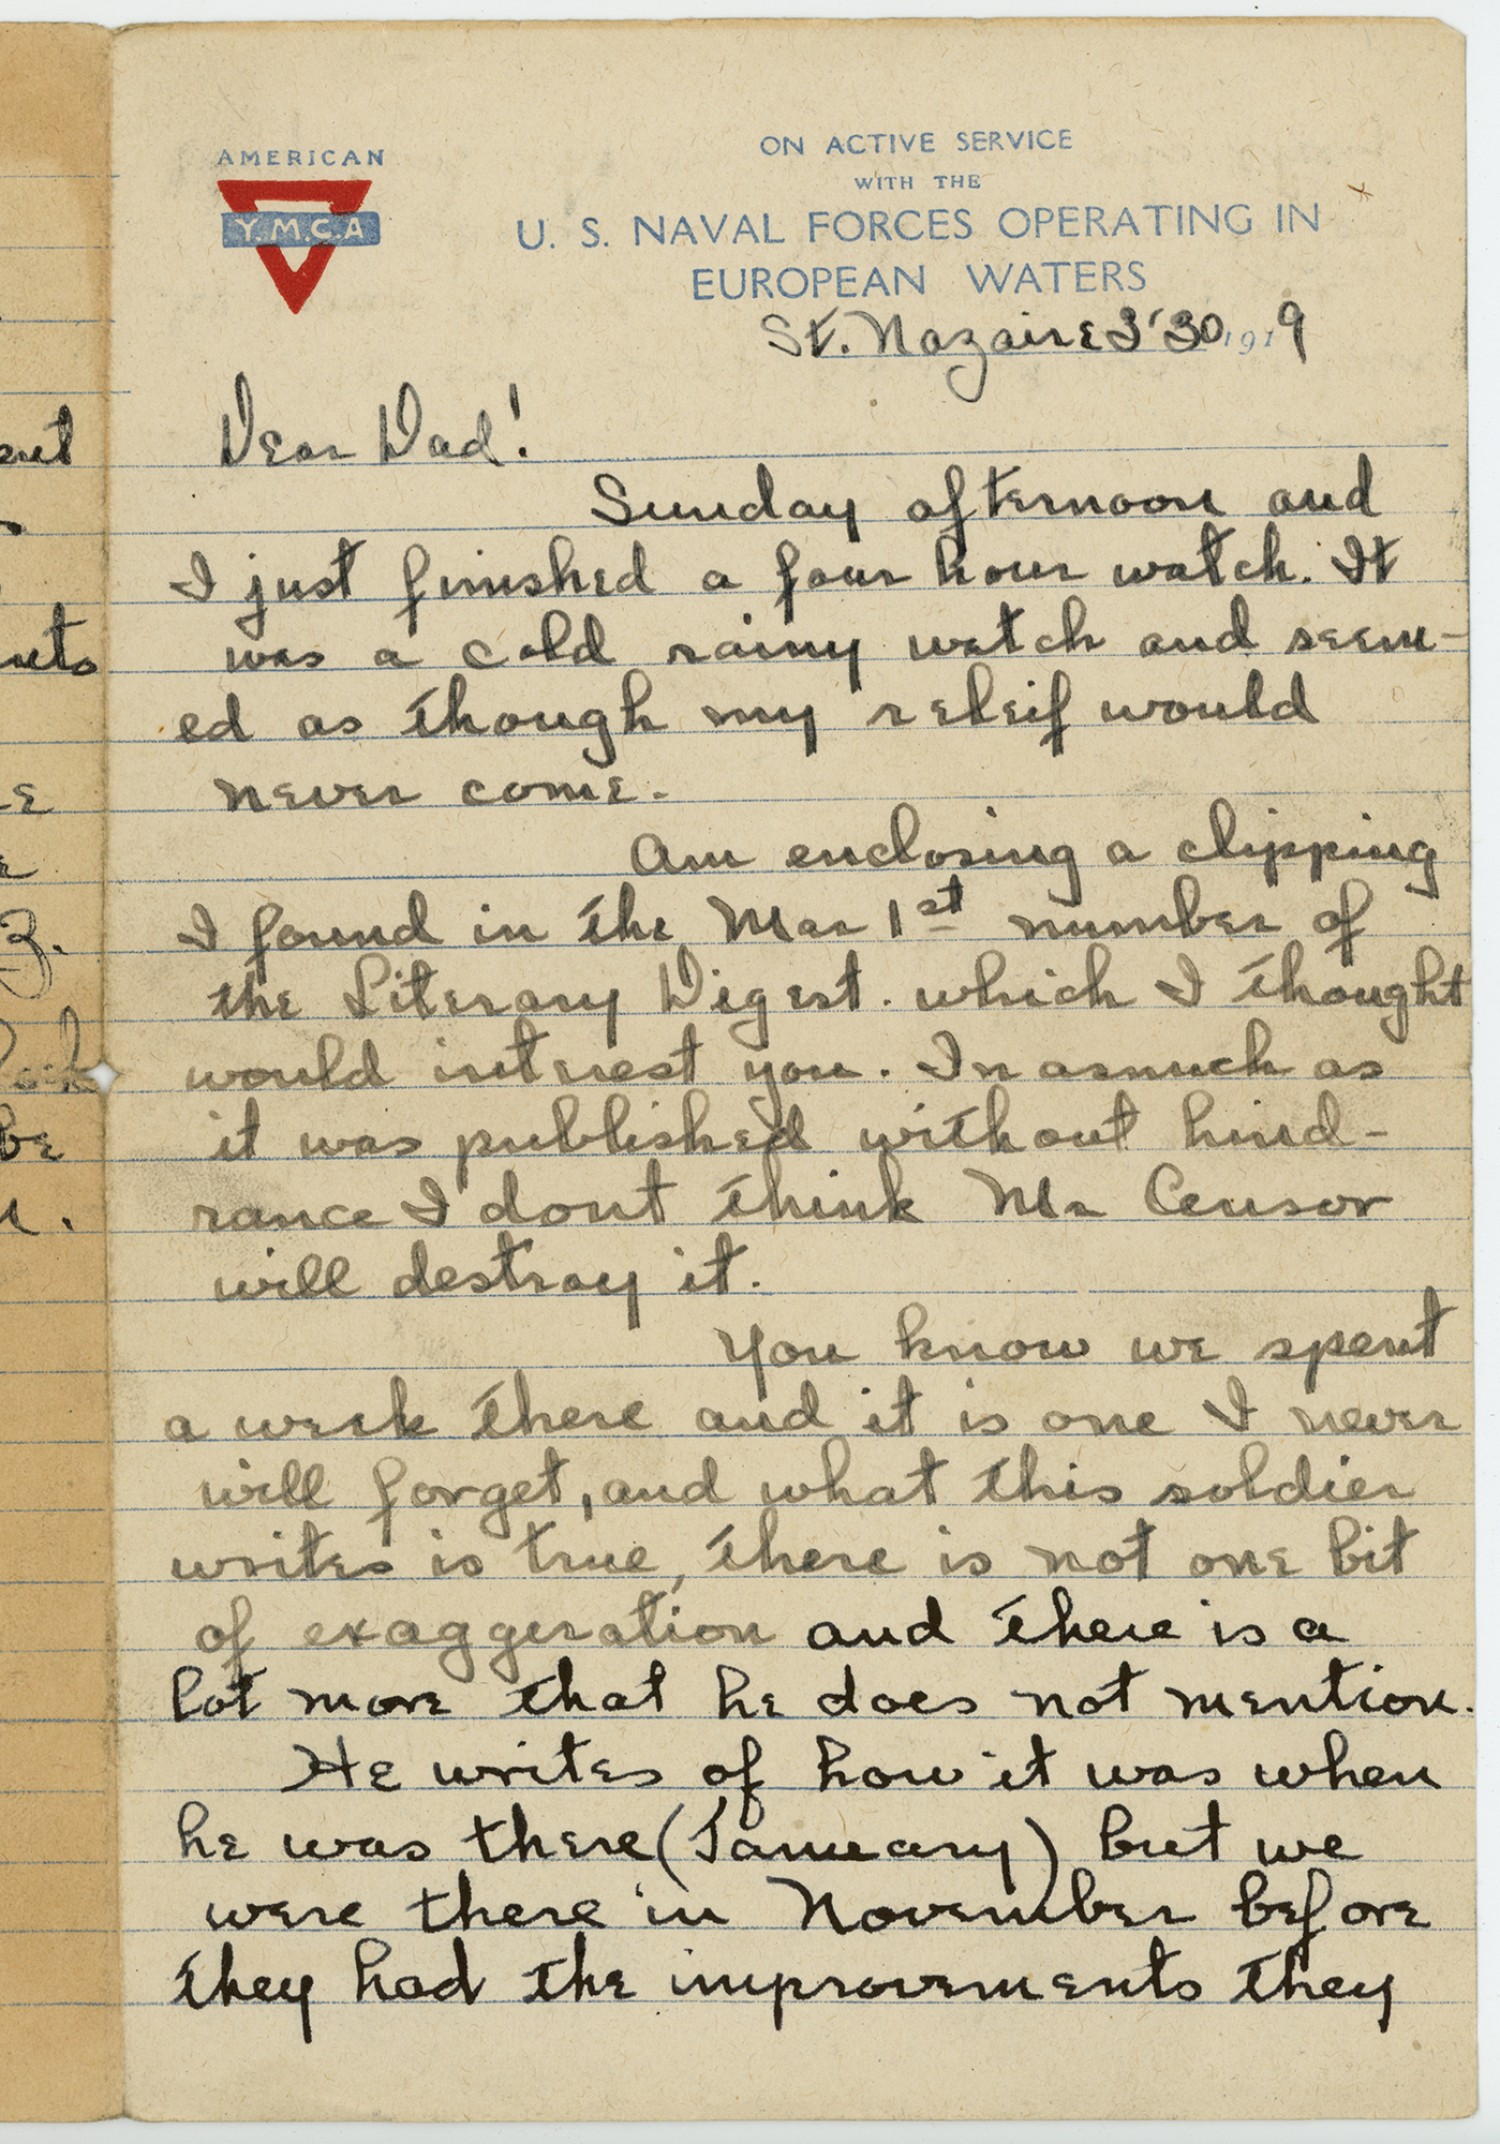 AMERICAN
Y.M.C.A
ON ACTIVE SERVICE
WITH THE
U. S. NAVAL FORCES OPERATING IN
EUROPEAN WATERS
St. Nazaire 3'30 1919
Dear Dad!
Sunday afternoon and
I just finished a four hour watch. It
was a cold rainy watch and seem-
ed as though my releif would
never come.
Am enclosing a clipping
I found in the Mar 1st number of
the Literary Digest. which I thought
would intrest you. In asmuch as
it was published without hind-
rance I dont think Mr Censor
will destroy it.
You know we spent
a week there and it is one I never
will forget, and what this soldier
writes is true, there is not one bit
of exaggeration and there is a
lot more that he does not mention.
He writes of how it was when
he was there (January) but we
were there in November before
they had the improvements they